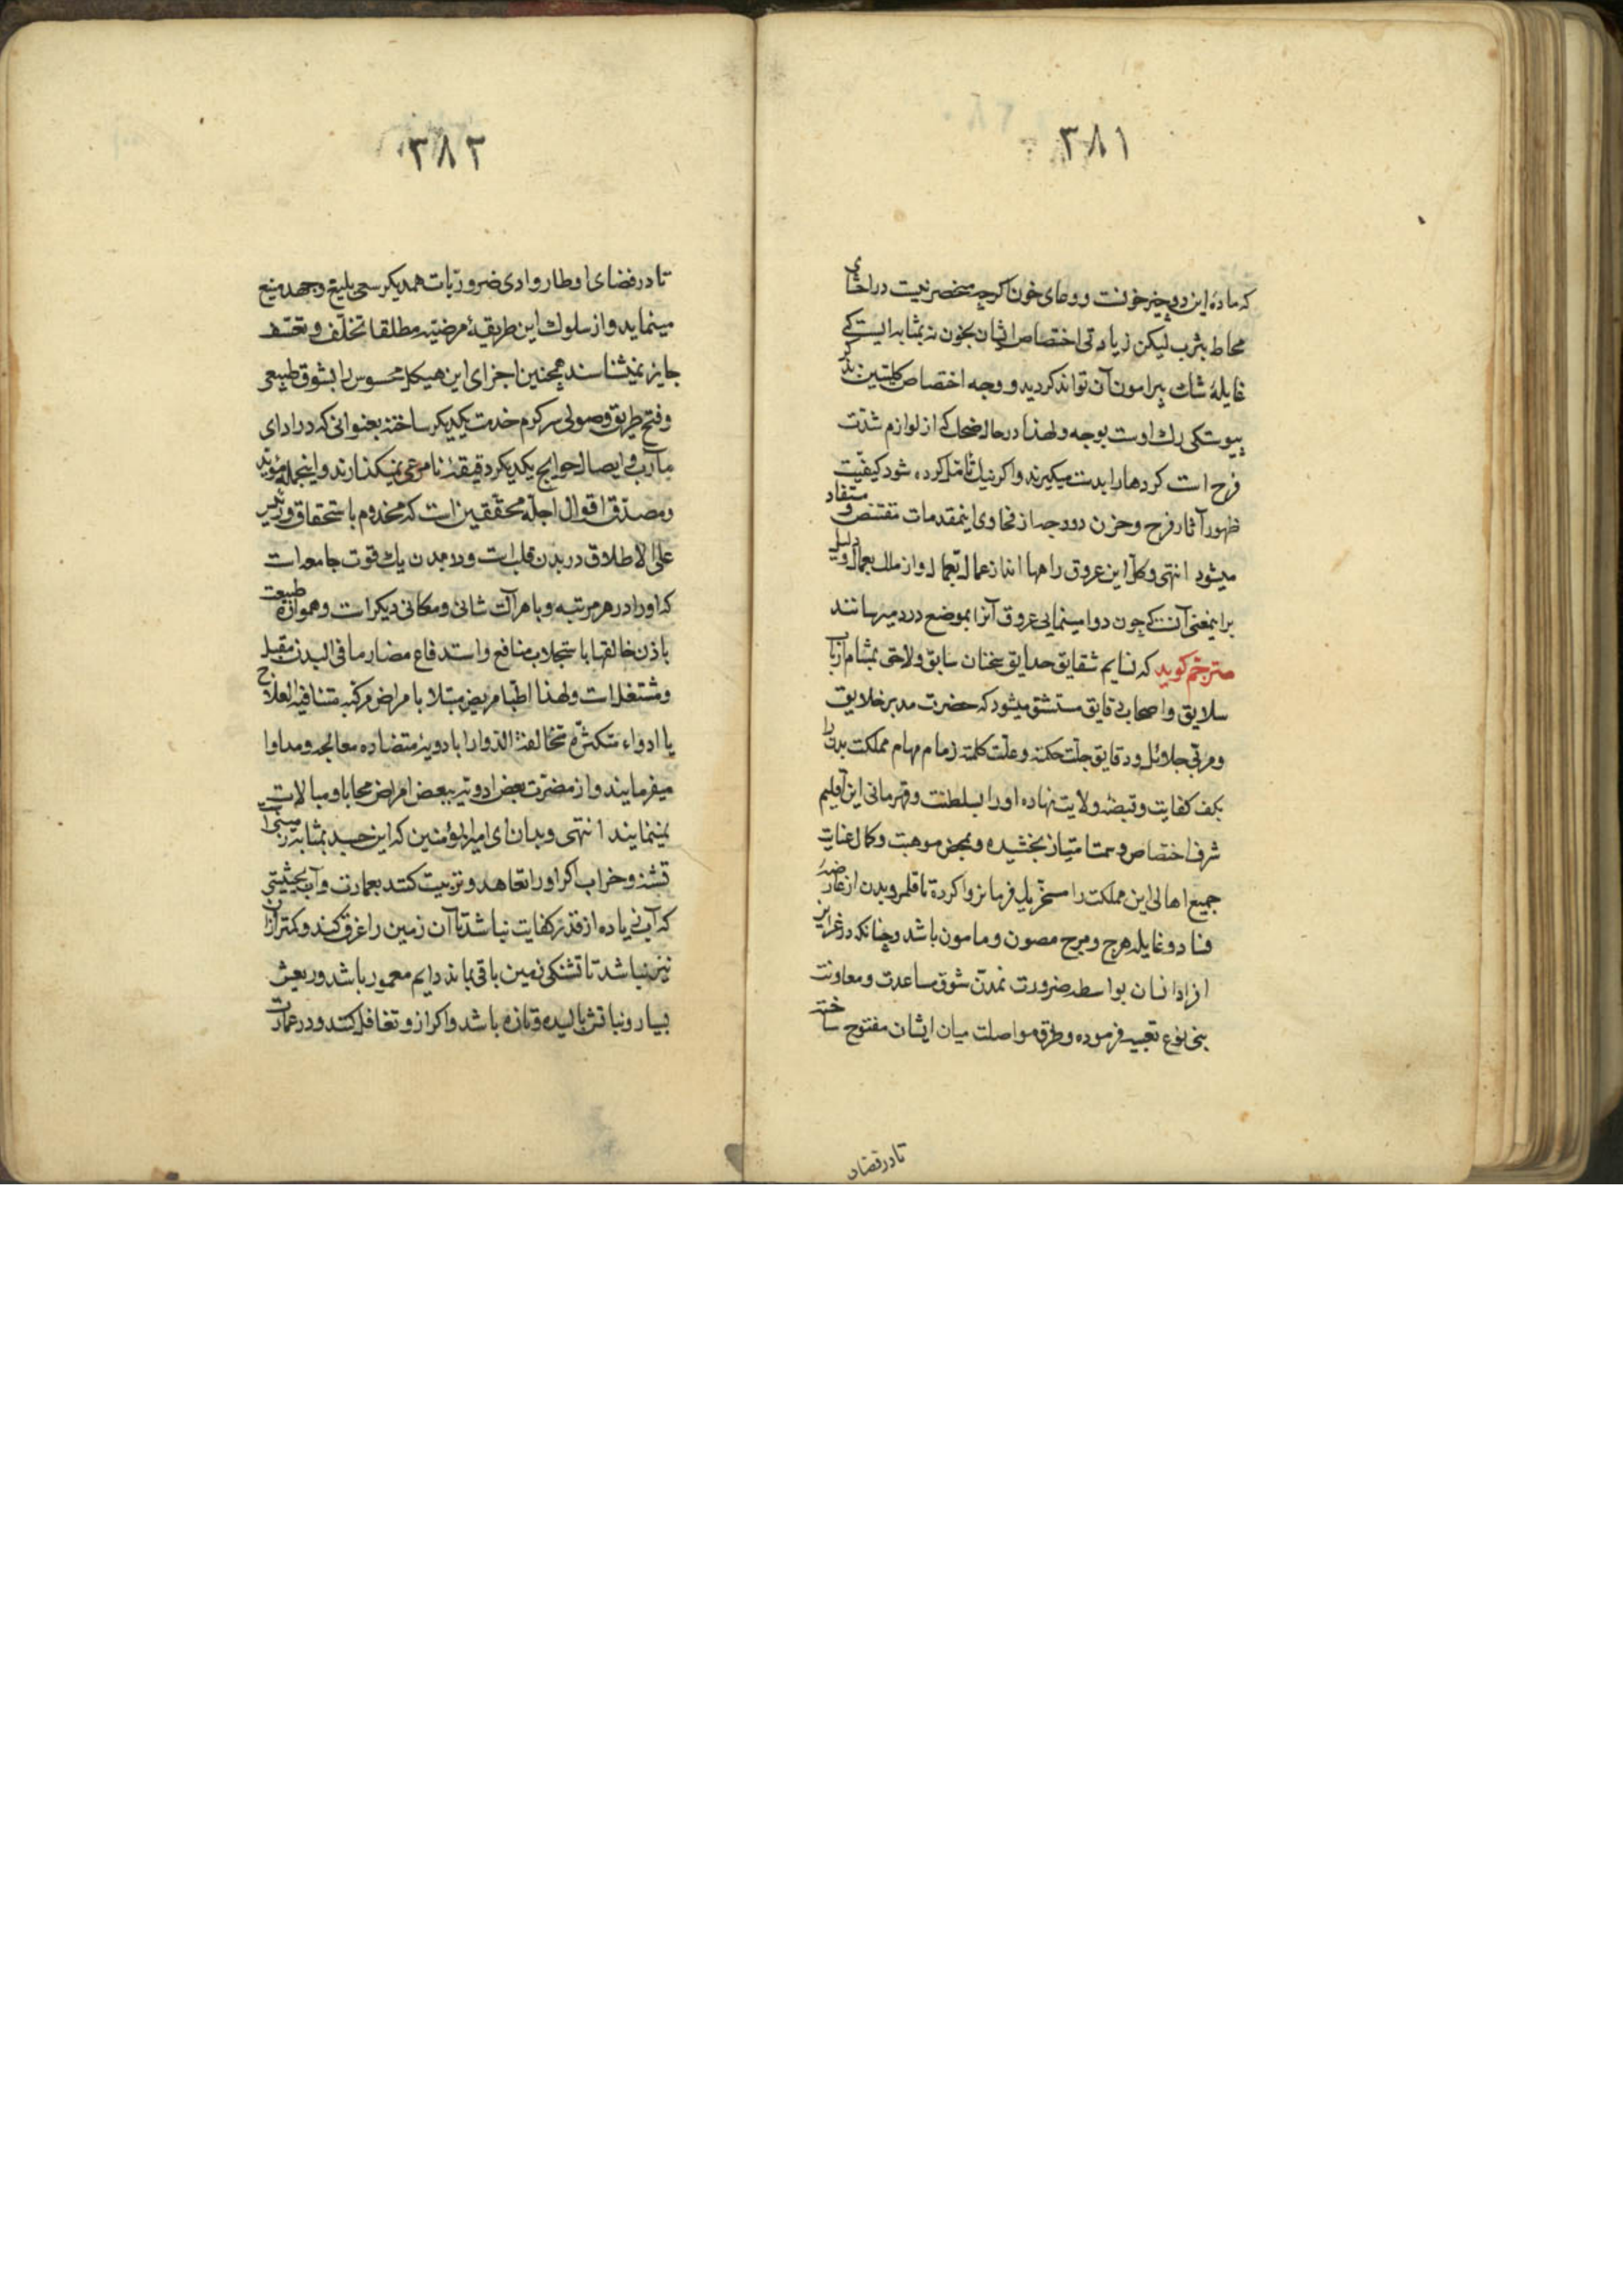 ۳۸۱
که ماده این دو چیز خونست و وعای خون اکرچه منحصر نیست در احشای
محاط بثرب لیکن زیادتی اختصاص ایشان بخون نه بمثابه ایست که
غایلهٔ شک پیرامون آن تواند کردید و وجه اختصاص کلیتین
پیوستکی رک اوست بوجه و لهذا در حال ضحک که از لوازم شدت
فرح است کرده‌ها را بدست میکیرند و اکر نیک تامل کرده شود کیفیت
ظهور آثار فرح و حزن در وجه از فحاوی اینمقدمات مقتنص و مستفاد
میشود انتهی و کل این عروق راهها اند از عمال بعمال و از ملک بعمال و دلیل
براینمعنی آنست که چون دوا مینمایی عروق آنرا بموضع درد میرسانند
مترجم کوید که نسایم شقایق حدایق سخنان سابق و لاحق بمشام ارباب
سلایق و اصحاب دقایق مستنشق میشود که حضرت مدبر خلایق
و مربی جلائل و دقایق جلت حکمته و علت کلمته زمام مهام مملکت بدن را
بکف کفایت و قبضهٔ ولایت نهاده او را بسلطنت و قهرمانی این اقلیم
شرف اختصاص و سمت امتیاز بخشیده و بمحض موهبت و کمال عنایت
جمیع اهالی این مملکت را مسخر یک فرمانروا کرده تا قلمرو بدن از عارضه
فساد و غایله هرج و مرج مصون و مامون باشد و چنانکه در غرایز
افراد انسان بواسطه ضرورت تمدن شوق مساعدت و معاونت
بنی نوع تعبیه فرموده و طرق مواصلت میان ایشان مفتوح ساخته
تا در قضاء
۳۸۲
تا در قضای اوطار و ادی ضروریات همدیکر سعی بلیغ و جهد منیع
مینماید و از سلوک این طریقهٔ مرضیه مطلقا تخلف و تعسف
جایز نمیشناسند همچنین اجزای این هیکل محسوس را بشوق طبیعی
و فتح طریق وصولی سرکرم خدمت یکدیکر ساخته بعنوانی که در ادای
مآرب و ایصال حوایج یکدیکر دقیقهٔ نامرعی نمیکذارند و اینجمله مؤید
و مصدق اقوال اجلهٔ محققین است که مخدوم باستحقاق و رئیس
علی الاطلاق در بدن قلب است و در بدن یک قوت جامعه است
که او را در هر مرتبه و با هر آلت شانی و مکانی دیکر است و همواره طبیعت
باذن خالقها باستجلاب منافع و استدفاع مضار ما فی البدن مقبل
و مشتغل است و لهذا اطبا مریض مبتلا بامراض مرکبه متنافیه العلاج
یا ادواء متکثره متخالفة الدوا را بادویهٔ متضاده معالجه و مداوا
میفرمایند و از مضرت بعض ادویه ببعض امراض محابا و مبالات
نمینمایند انتهی و بدان ای امیرالمؤمنین که این جسد بمثابه زمینی است
تشنه و خراب اکر او را تعاهد و تربیت کنند بعمارت و آب بحیثیتی
که آب زیاده از قدر کفایت نباشد تا آن زمین را غرق کند و کمتر ازان
نیز نباشد تا تشنکی زمین باقی بماند دایم معمور باشد و ریعش
بسیار و نباتش بالیده و تازه باشد و اکر از و تغافل کنند و در عمارت